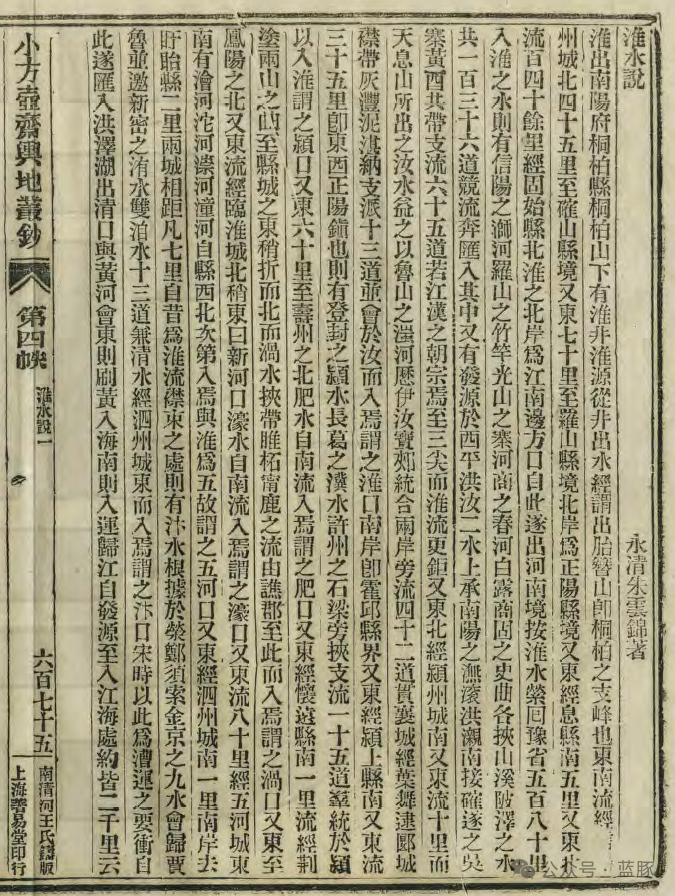 淮水說
永清朱雲錦著
淮出南陽府桐柏縣桐柏山下有淮井淮源從井出水經謂出胎簪山卽桐柏之支峰也東南流經
州城北四十五里至確山縣境又東七十里至羅山縣境北岸爲正陽縣境又東經息縣南五里又東北
流百四十餘里經固始縣北淮之北岸爲江南邊方口自此遂出河南境按淮水縈回豫省五百八十里
入淮之水則有信陽之溮河羅山之竹竿光山之寨河商之春河白露商固之史曲各挾山溪陂澤之水
共一百三十六道競流奔匯入其中又有發源於西平洪汝二水上承南陽之潕滚洪瀙南接確遂之吳
寨黃酉其帶支流六十五道若江漢之朝宗焉至三尖而淮流更鉅又東北經潁州城南又東流十里而
天息山所出之汝水益之以魯山之滍河歷伊汝寶郟統合兩岸旁流四十二道貫襄城經葉舞逮郾城
襟帶灰灃泥湛納支派十三道並會於汝而入焉謂之淮口南岸卽霍邱縣界又東經潁上縣南又東流
三十五里卽東西正陽鎭也則有登封之潁水長葛之潩水許州之石梁旁挾支流一十五道羣統於潁
以入淮謂之潁口又東六十里至壽州之北肥水自南流入焉謂之肥口又東經懷遠縣南一里流經荆
塗兩山之間至縣城之東稍折而北而渦水挾帶睢柘甯鹿之流由譙郡至此而入焉謂之渦口又東至
鳳陽之北又東流經臨淮城北稍東曰新河口濠水自南流入焉謂之濠口又東流八十里經五河城東
南有澮河沱河漴河潼河自縣西北次第入焉與淮爲五故謂之五河口又東經泗州城南一里南岸去
盱眙縣二里兩城相距凡七里自昔爲淮流襟束之處則有汴水根據於滎鄭須索金京之九水會歸賈
魯並邀新密之洧水雙洎水十三道兼淸水經泗州城東而入焉謂之汴口宋時以此爲漕運之要衝自
此遂匯入洪澤湖出淸口與黃河會東則刷黃入海南則入運歸江自發源至入江海處約皆二千里云
小方壺齋輿地叢鈔
第四帙
淮水說一
六百七十五
南淸河王氏鑄版
上海著易堂印行
公众号・蓝豚